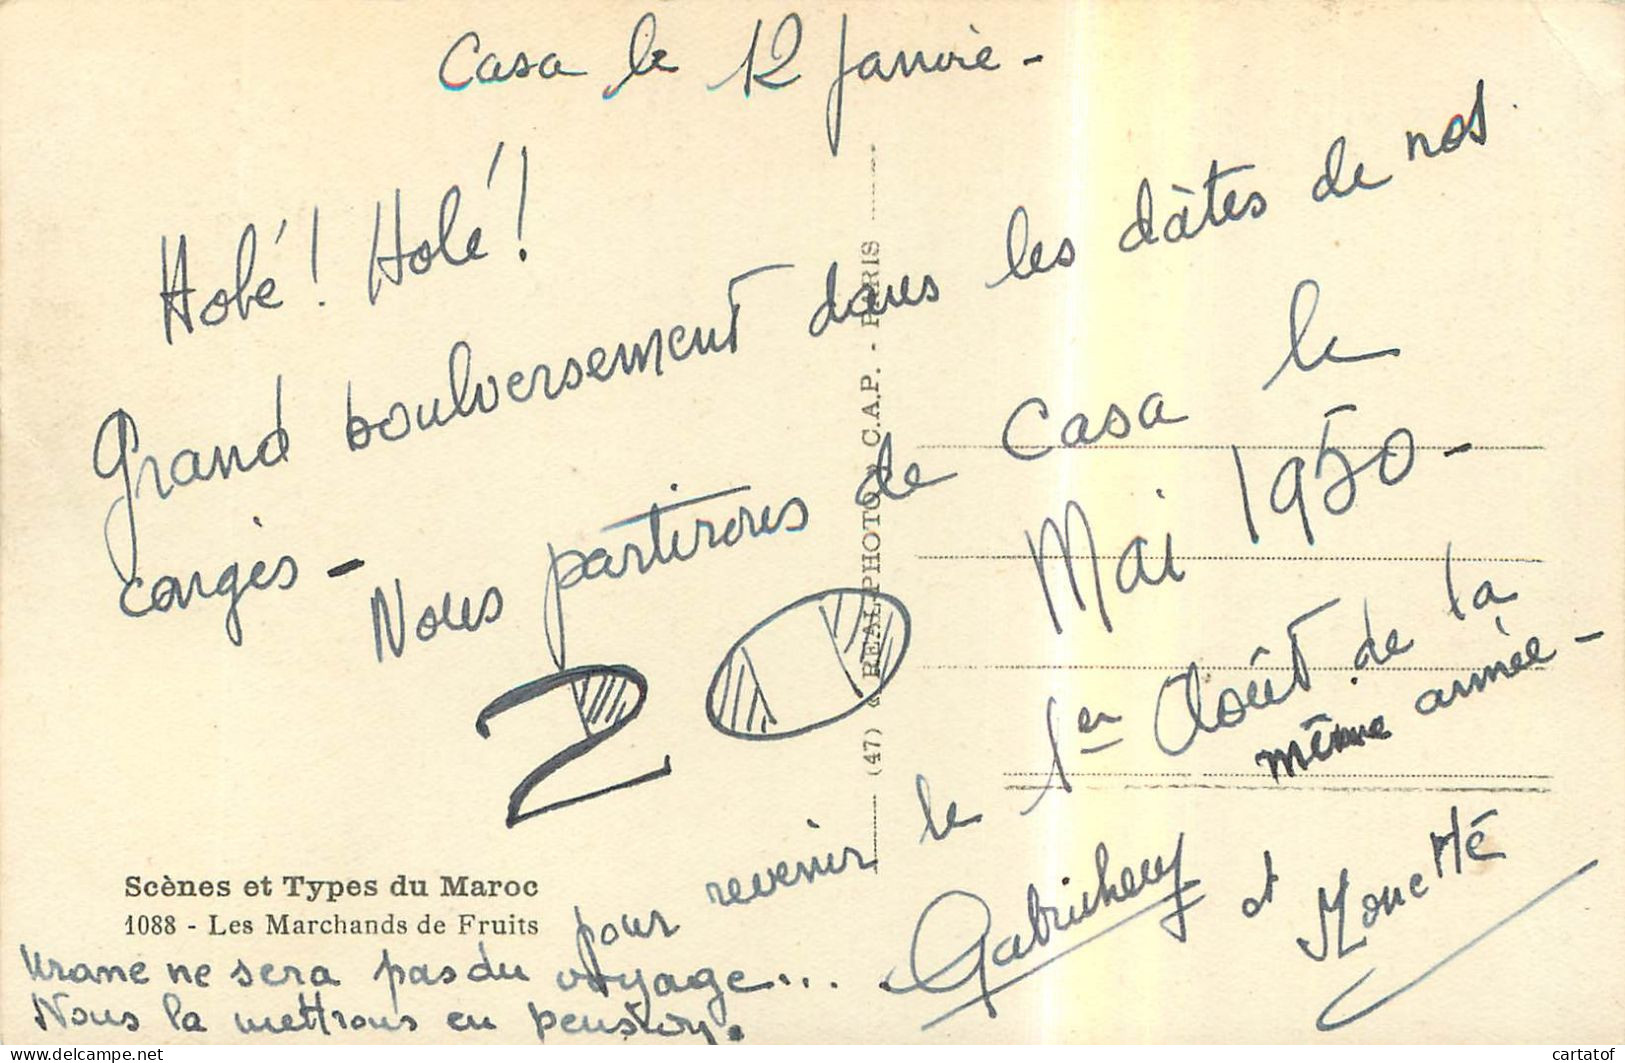 Casa le 12 Janvie -
Holé ! Holé !
Grand boulversement dans les dâtes de nos
congés -
Nous partirons de Casa le
20 Mai 1950 -
pour revenir le 1er Août de la
même année -
et
Scènes et Types du Maroc
1088 - Les Marchands de Fruits
Urane ne sera pas du voyage...
Nous la mettrons en pension.
(47) REAL-PHOTO C.A.P. - PARIS
cartatof